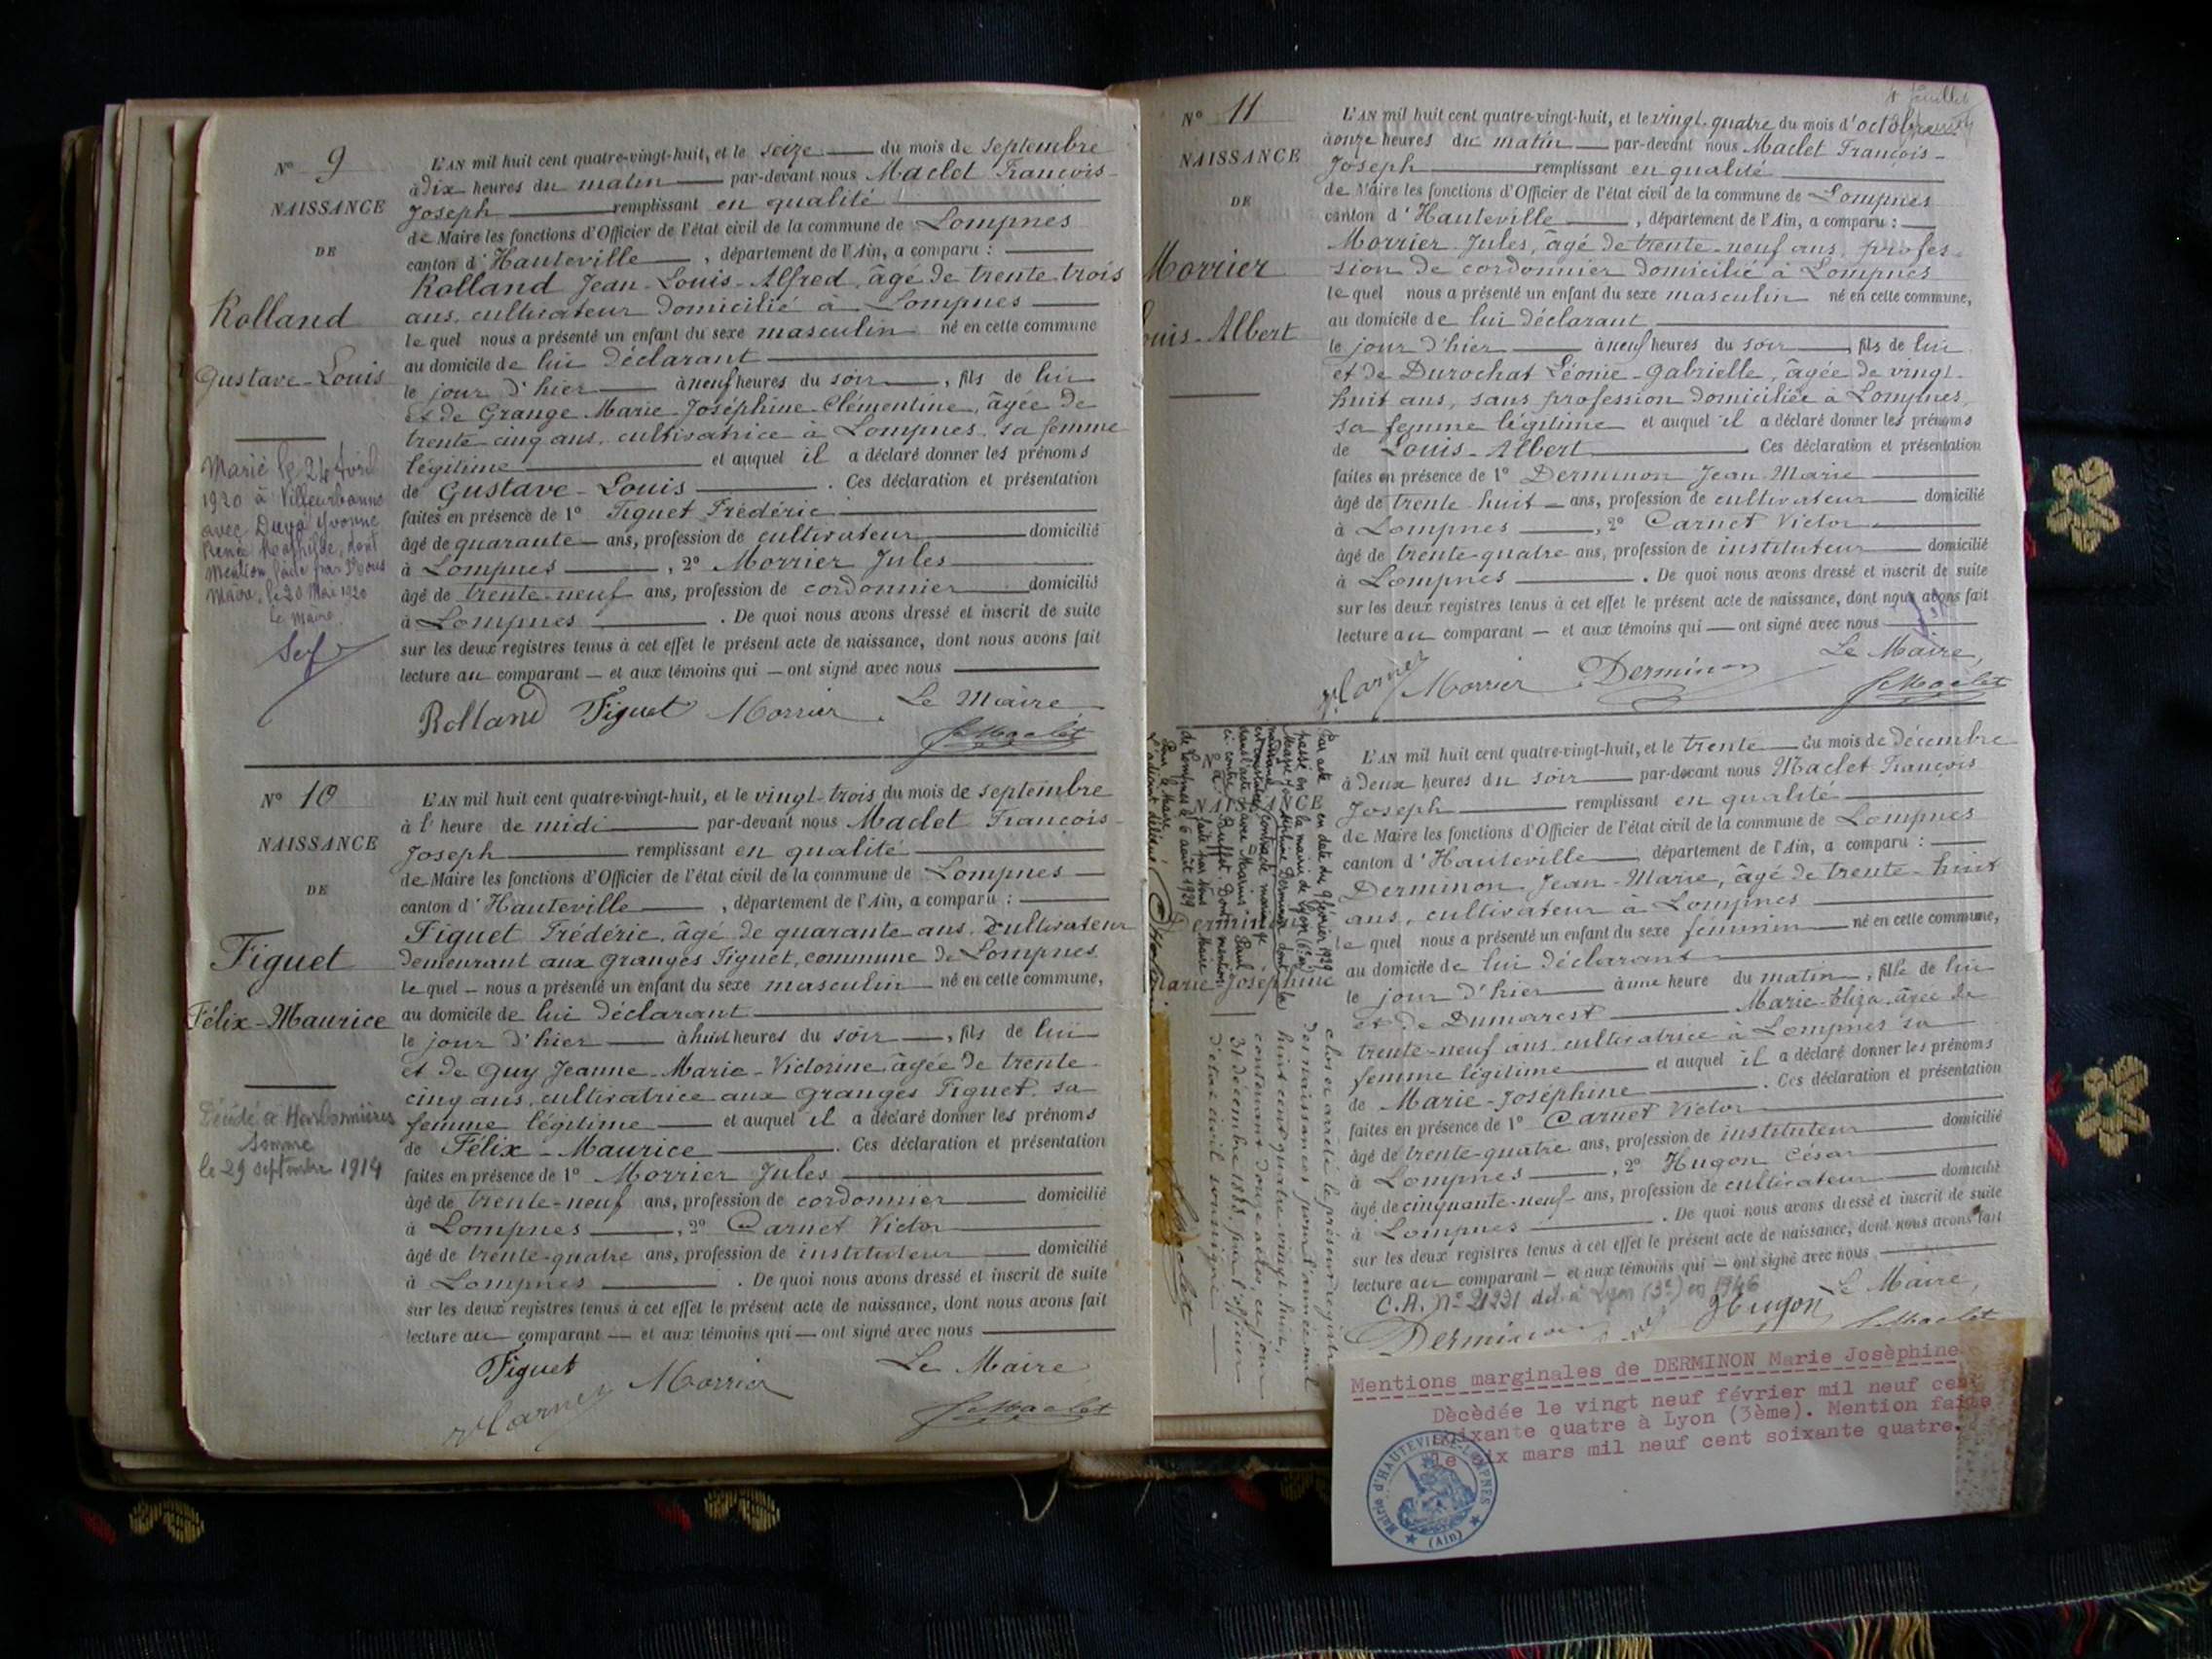 N° 9
NAISSANCE
DE
Rolland
Gustave-Louis
Marié le 24 Avril
1920 à Villeurbanne
avec
Renée Mathilde, dont
Mention faite par Nous
Maire, le 20 Mai 1920
Le Maire
L'AN mil huit cent quatre-vingt-huit, et le seize du mois de septembre
à dix heures du matin par-devant nous Maclet François-
Joseph remplissant en qualité
de Maire les fonctions d'Officier de l'état civil de la commune de Lompnes
canton d'Hauteville, département de l'Ain, a comparu :
Rolland Jean-Louis-Alfred, âgé de trente trois
ans, cultivateur domicilié à Lompnes
lequel nous a présenté un enfant du sexe masculin né en cette commune
au domicile de lui déclarant
le jour d'hier à neuf heures du soir, fils de lui
et de Grange Marie-Joséphine Clémentine, âgée de
trente-cinq ans, cultivatrice à Lompnes, sa femme
légitime et auquel il a déclaré donner les prénoms
de Gustave-Louis. Ces déclaration et présentation
faites en présence de 1° Figuet Frédéric
âgé de quarante ans, profession de cultivateur domicilié
à Lompnes, 2° Morrier Jules
âgé de trente-neuf ans, profession de cordonnier domicilié
à Lompnes. De quoi nous avons dressé et inscrit de suite
sur les deux registres tenus à cet effet le présent acte de naissance, dont nous avons fait
lecture au comparant — et aux témoins qui — ont signé avec nous
Rolland Figuet Morrier Le Maire,
N° 10
NAISSANCE
DE
Figuet
Félix-Maurice
Décédé à Harbonnières
Somme
le 29 septembre 1914
L'AN mil huit cent quatre-vingt-huit, et le vingt-trois du mois de septembre
à l'heure de midi par-devant nous Maclet François-
Joseph remplissant en qualité
de Maire les fonctions d'Officier de l'état civil de la commune de Lompnes
canton d'Hauteville, département de l'Ain, a comparu :
Figuet Frédéric, âgé de quarante ans, cultivateur
demeurant aux granges Figuet, commune de Lompnes
lequel — nous a présenté un enfant du sexe masculin né en cette commune,
au domicile de lui déclarant
le jour d'hier à huit heures du soir, fils de lui
et de Guy Jeanne-Marie-Victorine, âgée de trente-
cinq ans, cultivatrice aux granges Figuet, sa
femme légitime et auquel il a déclaré donner les prénoms
de Félix-Maurice. Ces déclaration et présentation
faites en présence de 1° Morrier Jules
âgé de trente-neuf ans, profession de cordonnier domicilié
à Lompnes, 2° Carnet Victor
âgé de trente-quatre ans, profession de instituteur domicilié
à Lompnes. De quoi nous avons dressé et inscrit de suite
sur les deux registres tenus à cet effet le présent acte de naissance, dont nous avons fait
lecture au comparant — et aux témoins qui — ont signé avec nous
Figuet Le Maire
V. Carnet Morrier
N° 11
NAISSANCE
DE
Morrier
Louis-Albert
L'AN mil huit cent quatre-vingt-huit, et le vingt-quatre du mois d'octobre
à onze heures du matin par-devant nous Maclet François-
Joseph remplissant en qualité
de Maire les fonctions d'Officier de l'état civil de la commune de Lompnes
canton d'Hauteville, département de l'Ain, a comparu :
Morrier Jules, âgé de trente-neuf ans, profes-
sion de cordonnier domicilié à Lompnes
lequel nous a présenté un enfant du sexe masculin né en cette commune,
au domicile de lui déclarant
le jour d'hier à neuf heures du soir, fils de lui
et de Durochat Léonie-Gabrielle, âgée de vingt-
huit ans, sans profession domiciliée à Lompnes,
sa femme légitime et auquel il a déclaré donner les prénoms
de Louis-Albert Ces déclaration et présentation
faites en présence de 1° Derminon Jean-Marie
âgé de trente-huit ans, profession de cultivateur domicilié
à Lompnes, 2° Carnet Victor
âgé de trente-quatre ans, profession de instituteur domicilié
à Lompnes. De quoi nous avons dressé et inscrit de suite
sur les deux registres tenus à cet effet le présent acte de naissance, dont nous avons fait
lecture au comparant — et aux témoins qui — ont signé avec nous
Le Maire,
V. Carnet Morrier Derminon
Par acte en date du 9 février 1929
passé en la mairie de Lyon
Marie Joséphine Derminon dont la
naissance est constatée
dans l'acte
ci-contre a contracté mariage
avec Marius Paul
Buffet. Dont mention
faite par Nous Maire
de Lompnes le 6 août 1929
Pour le Maire
L'adjoint délégué
NAISSANCE
Derminon
Marie Joséphine
clos et arrêté le présent registre
des naissances pour l'année mil
huit cent quatre-vingt-huit,
contenant douze actes, ce jour
31 décembre 1888, par l'officier
d'état civil soussigné
L'AN mil huit cent quatre-vingt-huit, et le trente du mois de décembre
à deux heures du soir par-devant nous Maclet François
Joseph remplissant en qualité
de Maire les fonctions d'Officier de l'état civil de la commune de Lompnes
canton d'Hauteville, département de l'Ain, a comparu :
Derminon Jean-Marie, âgé de trente-huit
ans, cultivateur à Lompnes
lequel nous a présenté un enfant du sexe féminin né en cette commune,
au domicile de lui déclarant
le jour d'hier à une heure du matin, fille de lui
et de Dumarest Marie-Eliza, âgée de
trente-neuf ans, cultivatrice à Lompnes sa
femme légitime et auquel il a déclaré donner les prénoms
de Marie-Joséphine. Ces déclaration et présentation
faites en présence de 1° Carnet Victor
âgé de trente-quatre ans, profession de instituteur domicilié
à Lompnes, 2° Hugon César
âgé de cinquante-neuf ans, profession de cultivateur domicilié
à Lompnes. De quoi nous avons dressé et inscrit de suite
sur les deux registres tenus à cet effet le présent acte de naissance, dont nous avons fait
lecture au comparant — et aux témoins qui — ont signé avec nous
C.A. N° 21221 del. à Lyon (3e) en 1946
Hugon Le Maire,
Derminon
Mentions marginales de DERMINON Marie Josèphine
Dècèdée le vingt neuf février mil neuf cent
soixante quatre à Lyon (3ème). Mention faite
le dix mars mil neuf cent soixante quatre.
Mairie d'HAUTEVILLE-LOMPNES
(Ain)